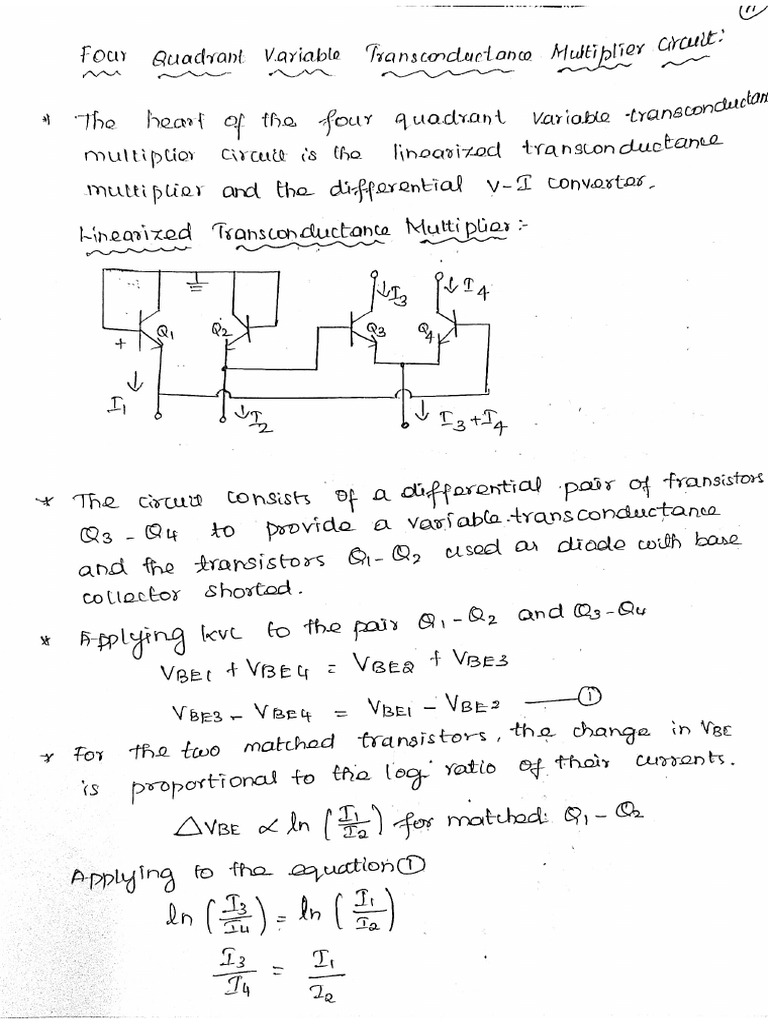 11
Four Quadrant Variable Transconductance Multiplier Circuit:
* The heart of the four quadrant variable transconductan
multiplier circuit is the linearized transconductance
multiplier and the differential V-I converter.
Linearized Transconductance Multiplier:-
I3 I4
Q1 Q2 Q3 Q4
+
I1 I2 I3+I4
* The circuit consists of a differential pair of transistors
Q3 - Q4 to provide a variable transconductance
and the transistors Q1-Q2 used as diode with base
collector shorted.
* Applying KVL to the pair Q1-Q2 and Q3-Q4
VBE1 + VBE4 = VBE2 + VBE3
VBE3 - VBE4 = VBE1 - VBE2 —— ①
* For the two matched transistors, the change in VBE
is proportional to the log ratio of their currents.
△VBE ∝ ln (I1/I2) for matched Q1 - Q2
Applying to the equation ①
ln (I3/I4) = ln (I1/I2)
I3/I4 = I1/I2